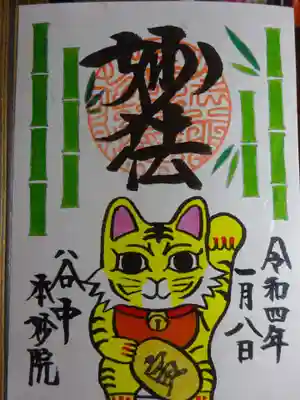 妙法
令和四年
一月八日
谷中
承妙院